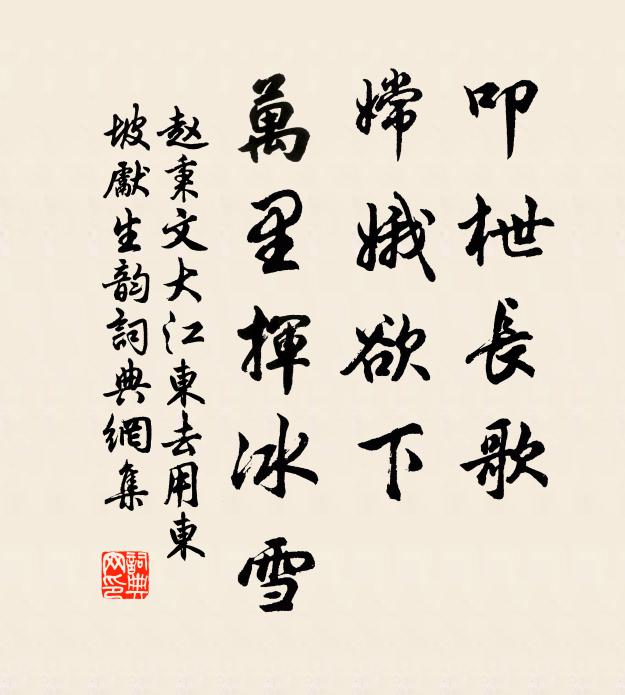 叩枻長歌
嫦娥欲下
萬里揮冰雪
赵秉文大江東去用東
坡獻生韵詞典網集
詞典
网印